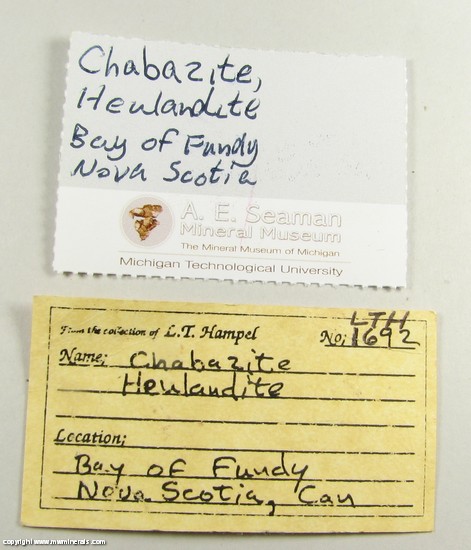 Chabazite,
Heulandite
Bay of Fundy
Nova Scotia
A. E. Seaman
Mineral Museum
The Mineral Museum of Michigan
Michigan Technological University
From the collection of L.T. Hampel
LTH
No; 1692
Name; Chabazite
Heulandite
Location;
Bay of Fundy
Nova Scotia, Can
copyright www.mwminerals.com